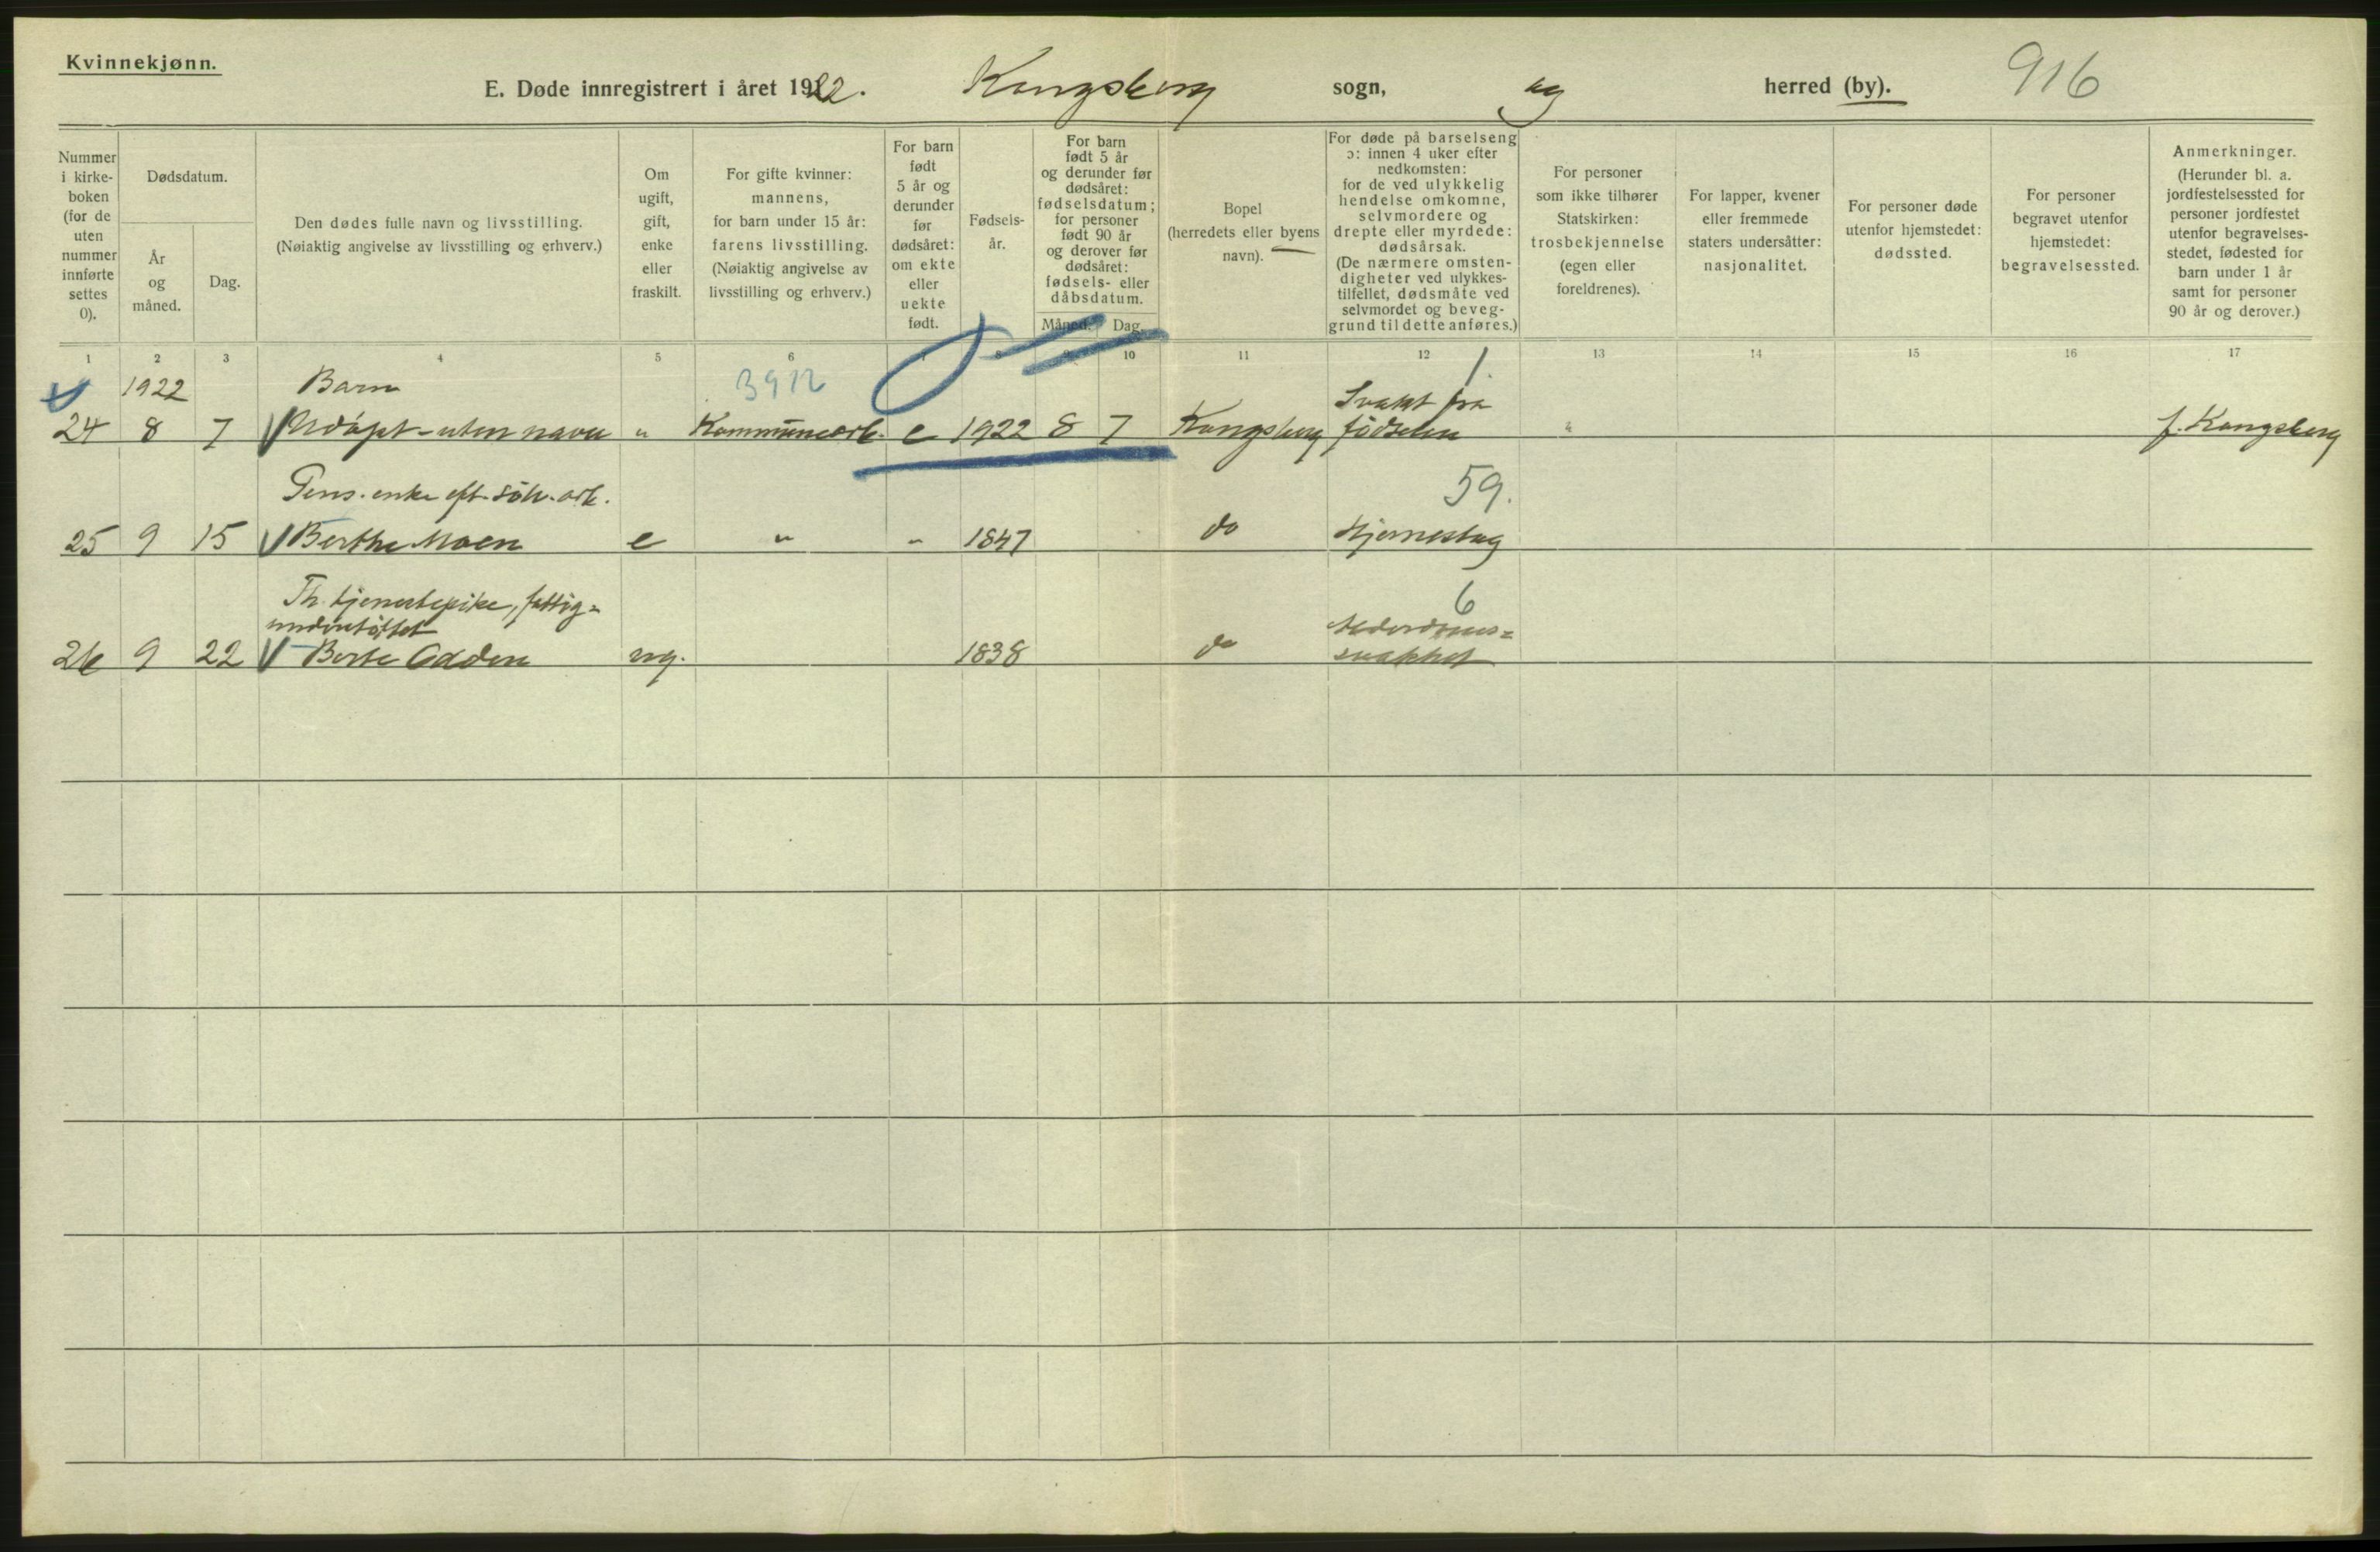 Kvinnekjønn.
E. Døde innregistrert i året 1922. Kongsberg sogn, og herred (by). 916
Nummer
i kirke-
boken
(for de
uten
nummer
innførte
settes
0).
Dødsdatum.
År
og
måned.
Dag.
Den dødes fulle navn og livsstilling.
(Nøiaktig angivelse av livsstilling og erhverv.)
Om
ugift,
gift,
enke
eller
fraskilt.
For gifte kvinner:
mannens,
for barn under 15 år:
farens livsstilling.
(Nøiaktig angivelse av
livsstilling og erhverv.)
For barn
født
5 år og
derunder
før
dødsåret:
om ekte
eller
uekte
født.
Fødsels-
år.
For barn
født 5 år
og derunder før
dødsåret:
fødselsdatum;
for personer
født 90 år
og derover før
dødsåret:
fødsels- eller
dåbsdatum.
Måned. Dag.
Bopel
(herredets eller byens
navn).
For døde på barselseng
ɔ: innen 4 uker efter
nedkomsten:
for de ved ulykkelig
hendelse omkomne,
selvmordere og
drepte eller myrdede:
dødsårsak.
(De nærmere omsten-
digheter ved ulykkes-
tilfellet, dødsmåte ved
selvmordet og beveg-
grund til dette anføres.)
For personer
som ikke tilhører
Statskirken:
trosbekjennelse
(egen eller
foreldrenes).
For lapper, kvener
eller fremmede
staters undersåtter:
nasjonalitet.
For personer døde
utenfor hjemstedet:
dødssted.
For personer
begravet utenfor
hjemstedet:
begravelsessted.
Anmerkninger.
(Herunder bl. a.
jordfestelsessted for
personer jordfestet
utenfor begravelses-
stedet, fødested for
barn under 1 år
samt for personer
90 år og derover.)
1 2 3 4 5 6 7 8 9 10 11 12 13 14 15 16 17
1922 Barn 3912 Svakt fra 1.
24 8 7 Udøpt - uten navn " Kommunearb. e 1922 8 7 Kongsberg fødselen " f. Kongsberg
Pens. enke eft. sølv. arb. 59.
25 9 15 Berthe Moen e " " 1847 do Hjerneslag
Fh. tjenestepike, fattig- 6
understøttet Alderdoms-
26 9 22 Berte Odden ug. 1838 do svakhet